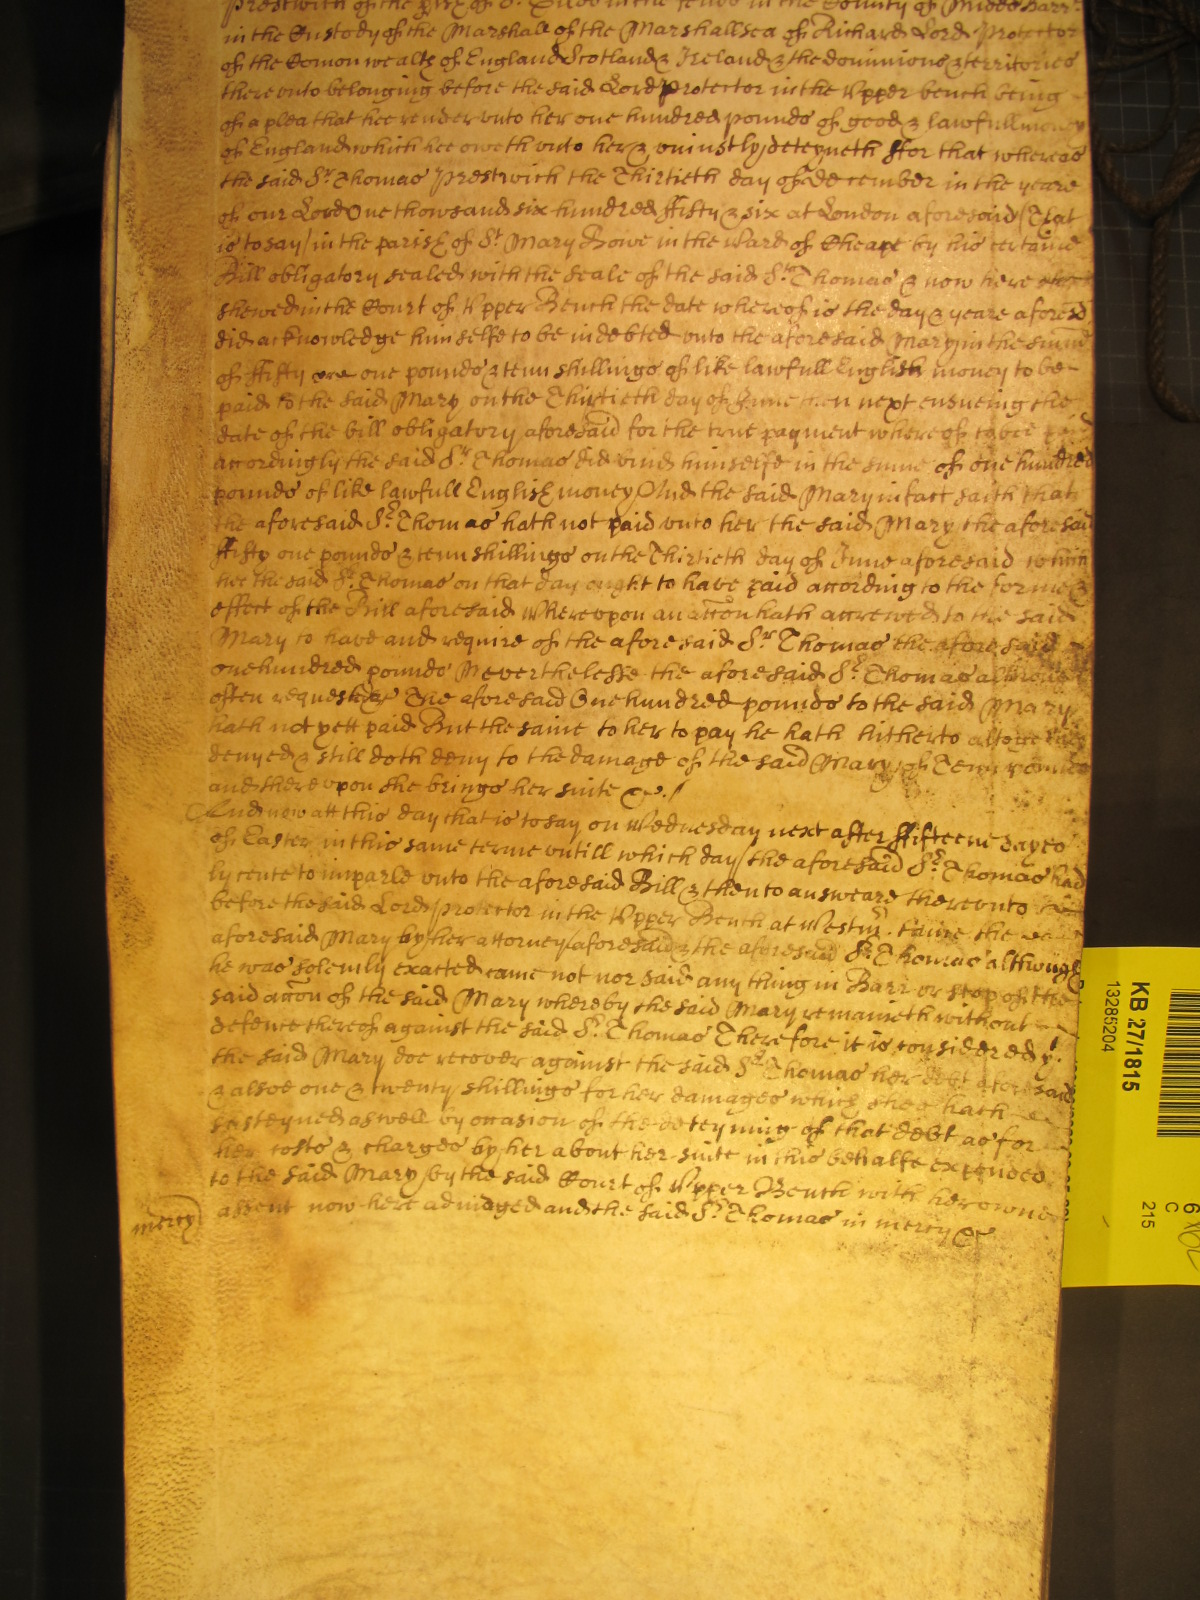 Prestwich of the pish of St. Giles in the feilds in the County of Midds Barrt
in the Custody of the Marshall of the Marshallsea of Richard Lord Protector
of the Comonwealth of England Scotland & Ireland & the dominions & territories
there vnto belonging before the said Lord Protector in the Vpper bench being
of a plea that hee render vnto her one hundred pounds of good & lawfull money
of England which hee oweth vnto her & vniustly deteyneth ffor that whereas
the said Sr Thomas Prestwich the Thirtieth day of December in the yeare
of our Lord One thowsand six hundred ffifty & six at London aforesaid (That
is to say) in the parish of St Mary Bowe in the Ward of Cheape by his certaine
Bill obligatory sealed with the seale of the said Sr Thomas & now here
shewed in the Court of Vpper Bench the date whereof is the day & yeare aforesd
did acknowledge himselfe to be indebted vnto the aforesaid Mary in the sume
of ffifty one pounds & tenn shillings of like lawfull English money to be
paid to the said Mary on the Thirtieth day of June then next ensueing the
date of the bill obligatory aforesaid for the true payment whereof to bee
accordingly the said Sr Thomas did bind himselfe in the sume of one hundred
pounds of like lawfull English money And the said Mary in fact saith that
the aforesaid Sr Thomas hath not paid vnto her the said Mary the aforesaid
ffifty one pounds & tenn shillings on the Thirtieth day of June aforesaid which
hee the said Sr Thomas on that day ought to have paid according to the forme &
effect of the Bill aforesaid Wherevpon an accon hath accrewed to the said
Mary to have and require of the aforesaid Sr Thomas the aforesaid
one hundred pounds Neverthelesse the aforesaid Sr Thomas although
often requested The aforesaid One hundred pounds to the said Mary
hath not yett paid But the same to her to pay he hath hitherto altogether
denyed & still doth deny to the damage of the said Mary of Tenn pounds
and therevpon she brings her suite &c./
And now att this day that is to say on Wednesday next after ffifteene dayes
of Easter in this same terme vntill which day the aforesaid Sr Thomas had
lycence to imparle vnto the aforesaid Bill & then to answeare therevnto
before the said Lord Protector in the Vpper Bench at Westmr. came the
aforesaid Mary by her attorney aforesaid & the aforesaid Sr Thomas although
he was solemly exacted came not nor said any thing in Barr or stop of the
said accon of the said Mary whereby the said Mary remaineth without
defence thereof against the said Sr Thomas Therefore it is considered yt
the said Mary doe recover against the said Sr Thomas her debt aforesaid
& alsoe one & twenty shillings for her damages which shee hath
susteyned aswell by occasion of the deteyning of that debt as for
her costs & charges by her about her suite in this behalfe expended
to the said Mary by the said Court of Vpper Bench with her owne
mercy assent now here adiudged and the said Sr Thomas in mercy &c
KB 27/1815
13285204
6
C
215